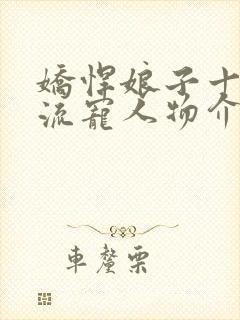 嬌悍娘子十
流寵人物介
車釐栗